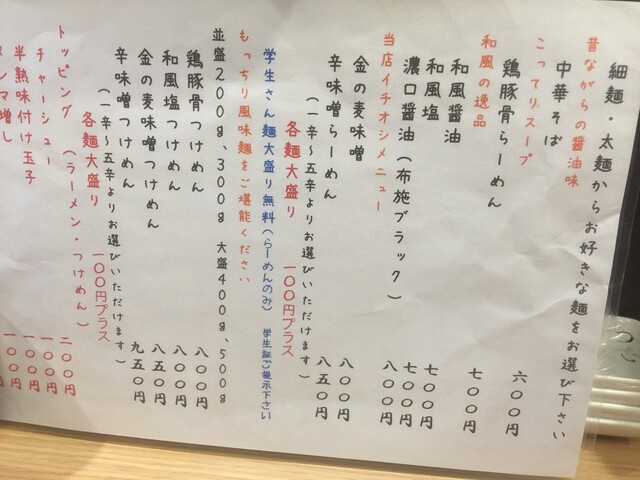 細麺・太麺からお好きな麺をお選び下さい
昔ながらの醤油味
中華そば 六〇〇円
こってりスープ
鶏豚骨らーめん 七〇〇円
和風の逸品
和風醤油 七〇〇円
和風塩 七〇〇円
濃口醤油(布施ブラック) 七〇〇円
当店イチオシメニュー
金の麦味噌 八〇〇円
辛味噌らーめん 八五〇円
(一辛～五辛よりお選びいただけます)
各麺大盛り 一〇〇円プラス
学生さん麺大盛り無料(らーめんのみ) 学生証ご提示下さい
もっちり風味麺をご堪能ください
並盛200g、300g 大盛400g、500g
鶏豚骨つけめん 八〇〇円
和風塩つけめん 八〇〇円
金の麦味噌つけめん 八五〇円
辛味噌つけめん 九五〇円
(一辛～五辛よりお選びいただけます)
各麺大盛り 一〇〇円プラス
トッピング(ラーメン・つけめん)
チャーシュー 二〇〇円
半熟味付け玉子 一〇〇円
メンマ増し 一〇〇円